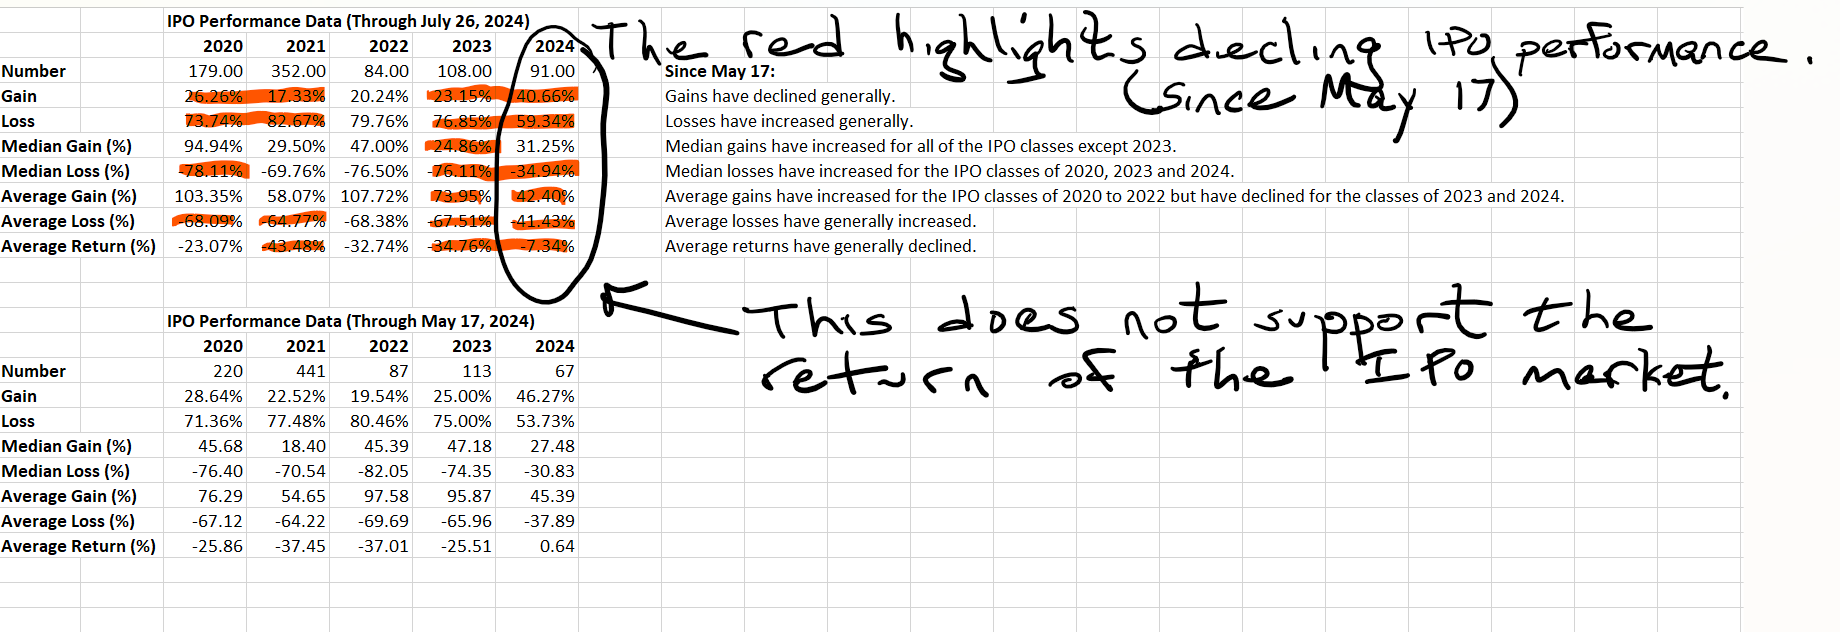 IPO Performance Data (Through July 26, 2024)
2020 2021 2022 2023 2024
Number 179.00 352.00 84.00 108.00 91.00 Since May 17:
Gain 26.26% 17.33% 20.24% 23.15% 40.66% Gains have declined generally.
Loss 73.74% 82.67% 79.76% 76.85% 59.34% Losses have increased generally.
Median Gain (%) 94.94% 29.50% 47.00% 24.86% 31.25% Median gains have increased for all of the IPO classes except 2023.
Median Loss (%) -78.11% -69.76% -76.50% -76.11% -34.94% Median losses have increased for the IPO classes of 2020, 2023 and 2024.
Average Gain (%) 103.35% 58.07% 107.72% 73.95% 42.40% Average gains have increased for the IPO classes of 2020 to 2022 but have declined for the classes of 2023 and 2024.
Average Loss (%) -68.09% -64.77% -68.38% -67.51% -41.43% Average losses have generally increased.
Average Return (%) -23.07% -43.48% -32.74% -34.76% -7.34% Average returns have generally declined.
The red highlights decling IPO performance.
(Since May 17)
This does not support the
return of the IPO market.
IPO Performance Data (Through May 17, 2024)
2020 2021 2022 2023 2024
Number 220 441 87 113 67
Gain 28.64% 22.52% 19.54% 25.00% 46.27%
Loss 71.36% 77.48% 80.46% 75.00% 53.73%
Median Gain (%) 45.68 18.40 45.39 47.18 27.48
Median Loss (%) -76.40 -70.54 -82.05 -74.35 -30.83
Average Gain (%) 76.29 54.65 97.58 95.87 45.39
Average Loss (%) -67.12 -64.22 -69.69 -65.96 -37.89
Average Return (%) -25.86 -37.45 -37.01 -25.51 0.64